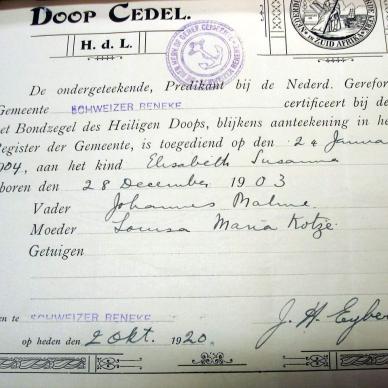 DOOP CEDEL.
H. d. L.
De ondergeteekende, Predikant bij de Nederd. Gerefor
Gemeente SCHWEIZER RENEKE certificeert bij de
et Bondzegel des Heiligen Doops, blijkens aanteekening in he
Register der Gemeente, is toegediend op den 24 Janua
904, aan het kind Elisabeth Susanna
boren den 28 December 1903
Vader Johannes
Moeder Louisa Maria Kotzé
Getuigen
en te SCHWEIZER RENEKE
op heden den 2 Okt. 1920.
J. H. Eyber